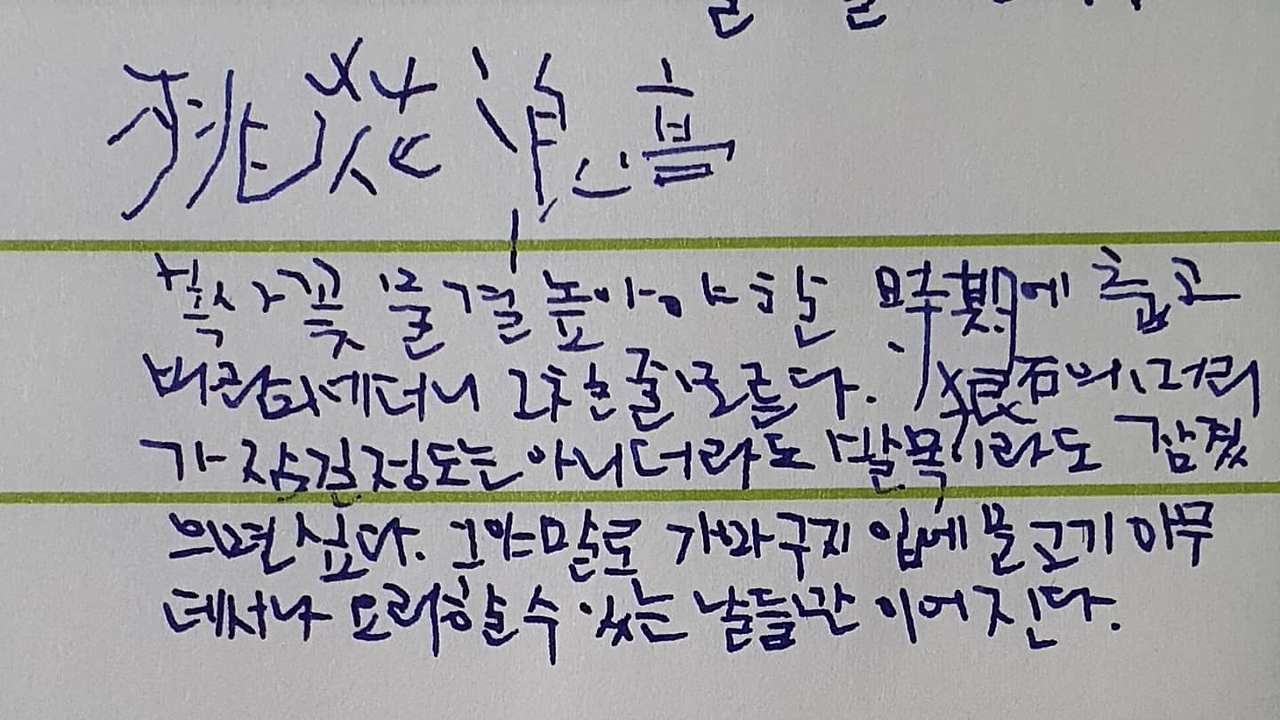 桃花浪高
복사꽃 물결 높아야 할 時期에 춥고
바람 세더니 2차는 줄 모른다. 狼石의 머리
가 잠긴 정도는 아니더라도 발목이라도 잠겼
으면 싶다. 그야말로 가마구지 입에 물고기 아무
데서나 요리할 수 있는 날들만 이어진다.